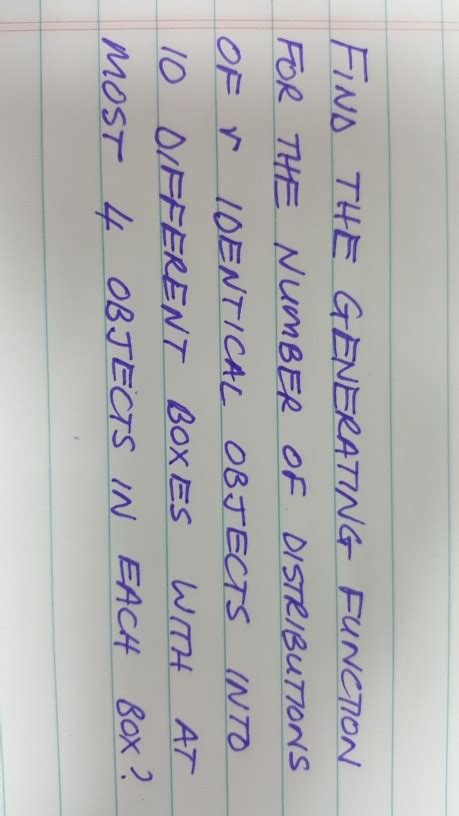 FIND THE GENERATING FUNCTION
FOR THE NUMBER OF DISTRIBUTIONS
OF r IDENTICAL OBJECTS INTO
10 DIFFERENT BOXES WITH AT
MOST 4 OBJECTS IN EACH BOX?